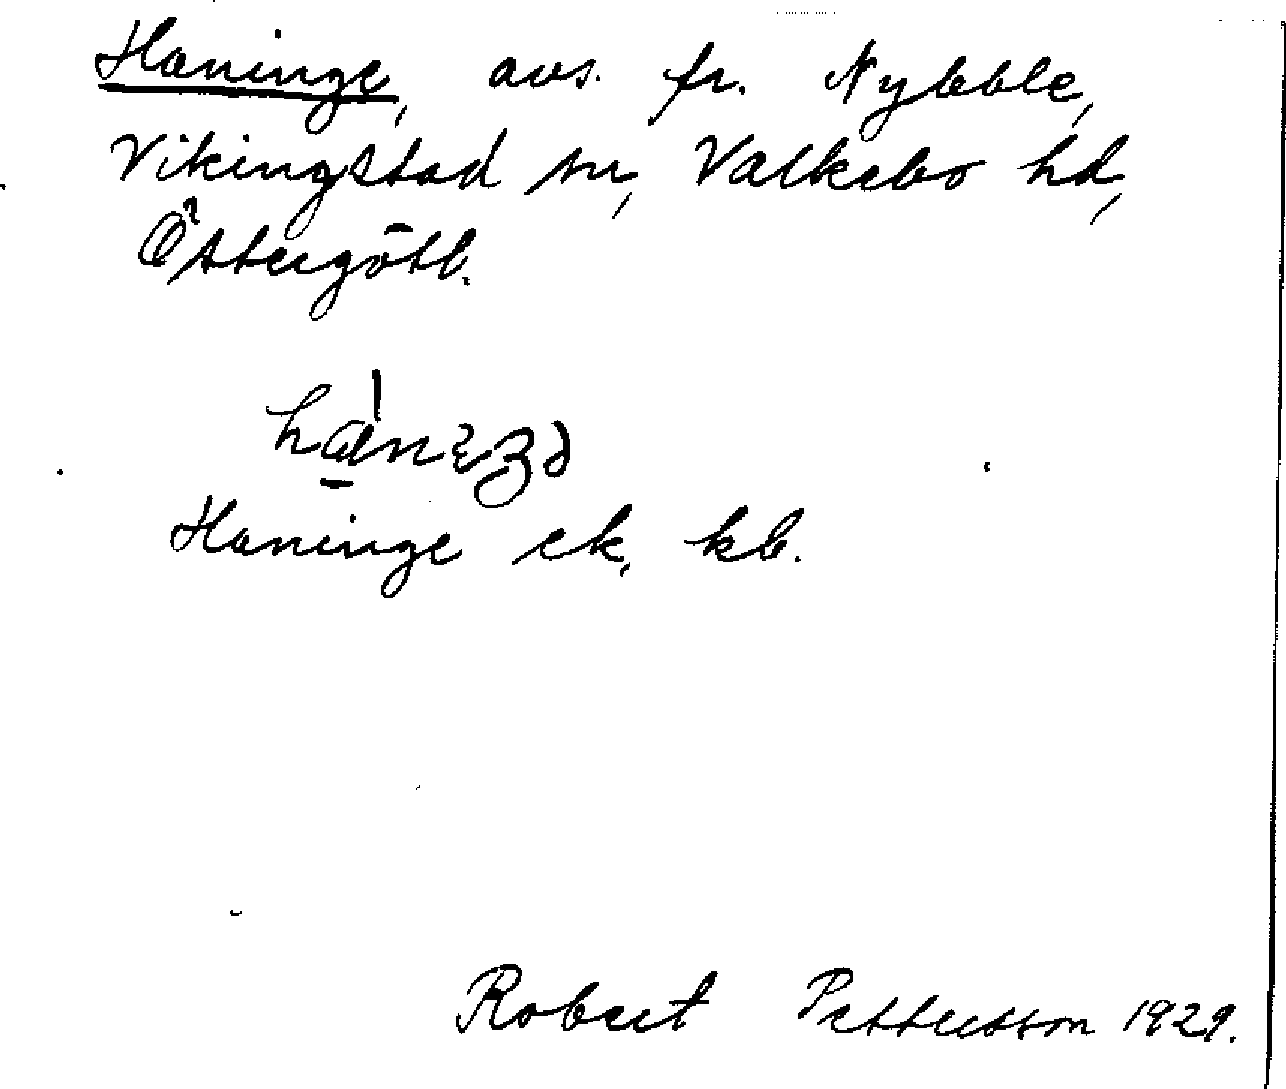 Haninge, avs. fr. Nybble,
Vikingstad sn, Valkebo hd,
Östergötl.
Haninge ek, kb.
Robert Pettersson 1929.